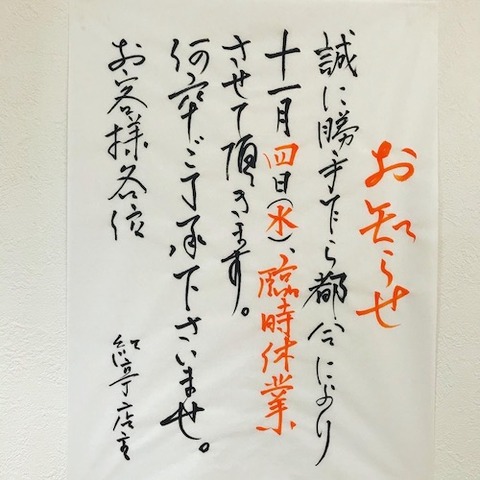 お知らせ
誠に勝手ながら都合により
十一月四日(水)、臨時休業
させて頂きます。
何卒ご了承下さいませ。
お客様各位
紅亭店主